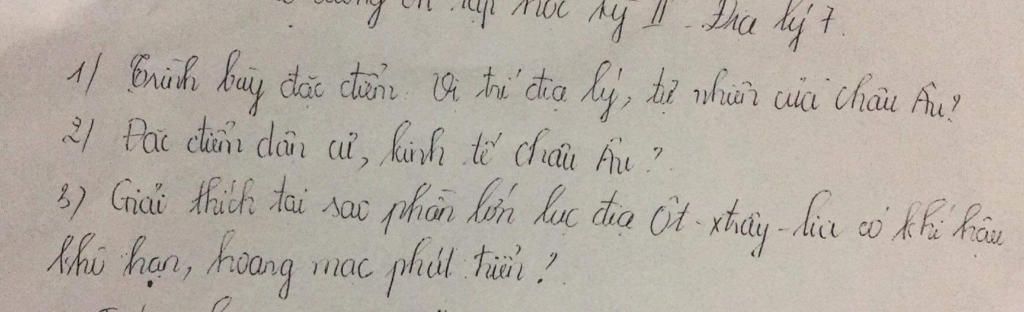 cương ôn tập học kỳ II - Địa lý 7.
1) Trình bày đặc điểm vị trí địa lý, tự nhiên của châu Âu?
2) Đặc điểm dân cư, kinh tế châu Âu?
3) Giải thích tại sao phần lớn lục địa Ôt-xtrây-lia có khí hậu
khô hạn, hoang mạc phát triển?